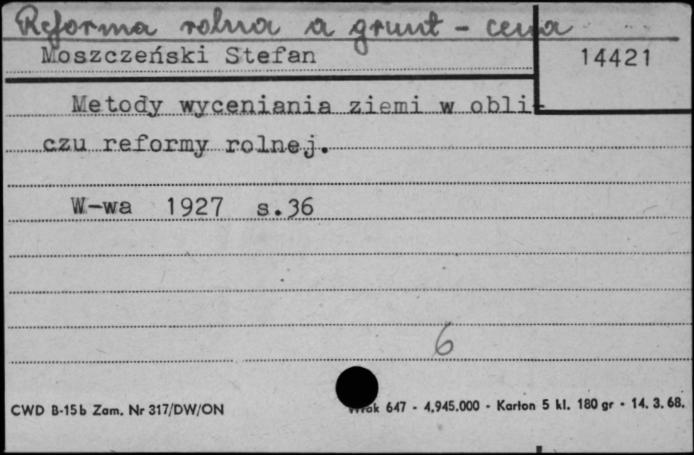 Reforma rolna a grunt - cena
Moszczeński Stefan
14421
Metody wyceniania ziemi w obli-
czu reformy rolnej.
W-wa 1927 s.36
6
CWD B-15b Zam. Nr 317/DW/ON
647 - 4.945.000 - Karton 5 kl. 180 gr - 14. 3. 68.